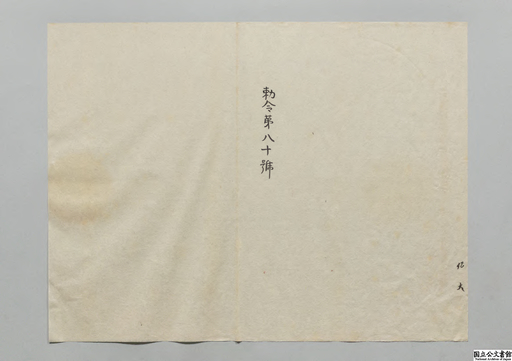 勅令第八十號
國立公文書館
National Archives of Japan